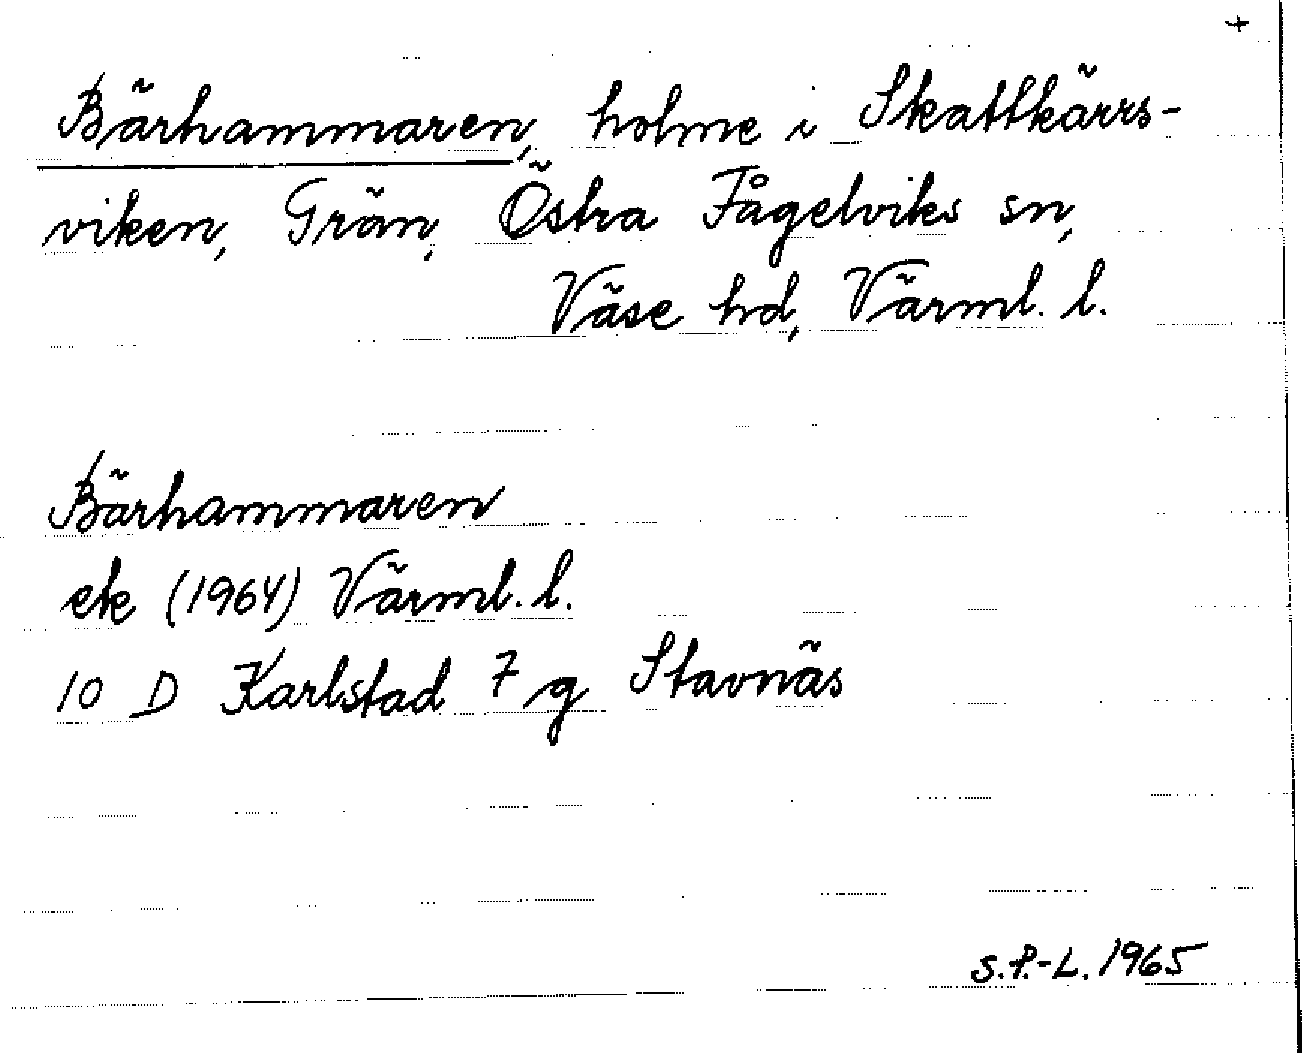 +
Bärhammaren, holme i Skattkärrs-
viken, Grän, Östra Fågelviks sn,
Väse hd, Värml. l.
Bärhammaren
ek (1964) Värml. l.
10 D Karlstad 7 g Stavnäs
S.P.-L. 1965